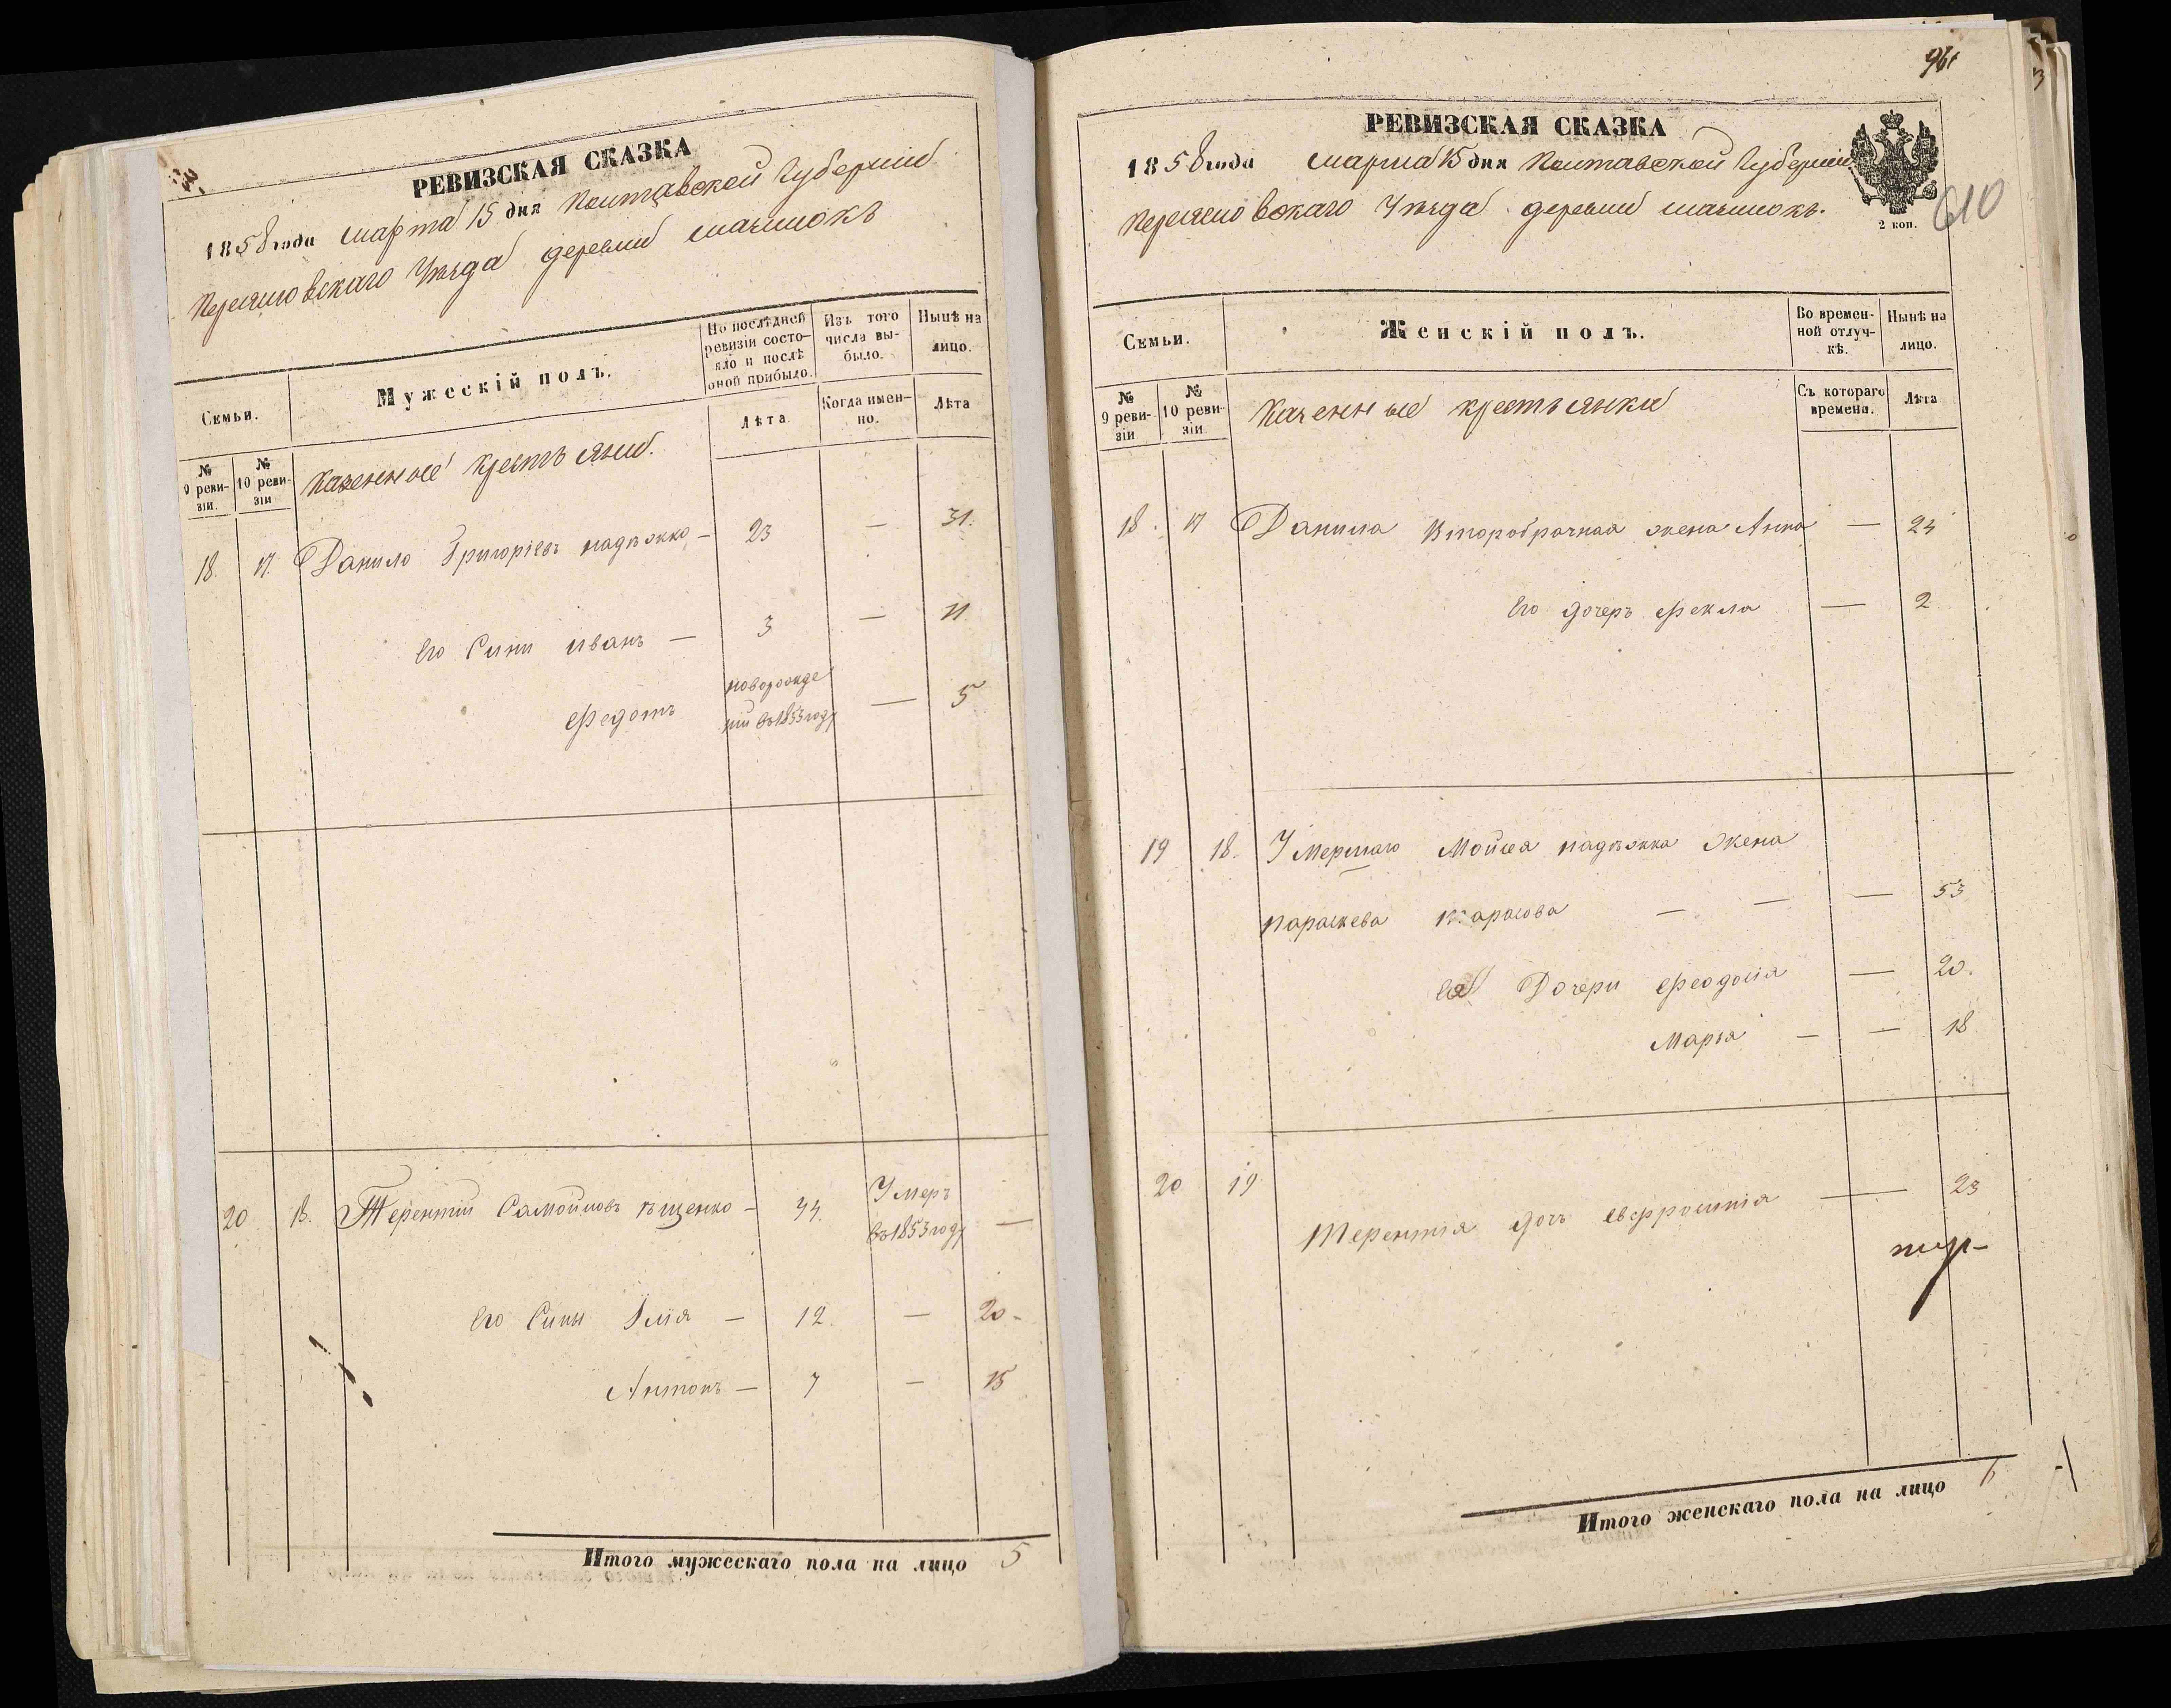 РЕВИЗСКАЯ СКАЗКА
1858 года марта 15 дня Полтавской Губерніи
Переяславскаго Уѣзда деревни
Семьи.
Мужескій полъ.
По послѣдней ревизіи состояло и послѣ оной прибыло.
Изъ того числа выбыло.
Нынѣ на лицо.
№ 9 ревизіи.
№ 10 ревизіи
Казенные крестьяни.
Лѣта
Когда именно.
Лѣта
18. 17. Данило Григоріевъ надѣжка — 23 — 31.
Его Сини иванъ — 3 — 11
Федотъ новорожде
ній въ 1853 году — 5
20 18. Терентій Самойловъ ѣщенко — 44. Умеръ
въ 1853 году —
Его Сины Илія — 12. — 20 -
Антонъ — 7 — 15
Итого мужескаго пола на лицо 5
РЕВИЗСКАЯ СКАЗКА
1858 года марта 15 дня Полтавской Губерніи
Переяславскаго Уѣзда деревни
2 коп.
610
Семьи.
Женскій полъ.
Во временной отлучкѣ.
Нынѣ на лицо.
№ 9 ревизіи
№ 10 ревизіи
Казенные крестьянки
Съ котораго времени.
Лѣта
18. 17 Данила Второбрачная жена Анна — 24
Его дочеръ Фекла — 2
19 18. Умершаго Мойсея надѣжка Жена
параскева тарасова — — — 53
Ея Дочери Феодосія — 20.
Марья — — 18
20 19 Терентія дочь Евфросинія — 23
Итого женскаго пола на лицо 6